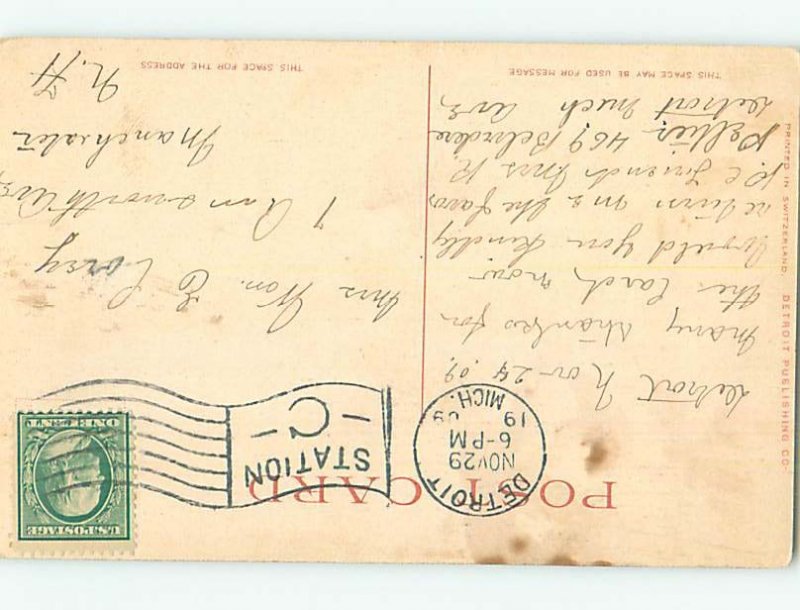 POST CARD
DETROIT
MICH.
NOV 29
6-PM
19 09
STATION
C
U.S. POSTAGE
ONE CENT
Detroit Nov 24, 09,
Many thanks for
the Card, now
Would you kindly
return me the favor
P.C friend Mrs R
Pellier 469 Belvidere
Detroit Mich Ave,
THIS SPACE MAY BE USED FOR MESSAGE
Mrs Wm. E Corey
7 Ainsworth Ave
Manchester
N. H
THIS SPACE FOR THE ADDRESS
PRINTED IN SWITZERLAND. DETROIT PUBLISHING CO.